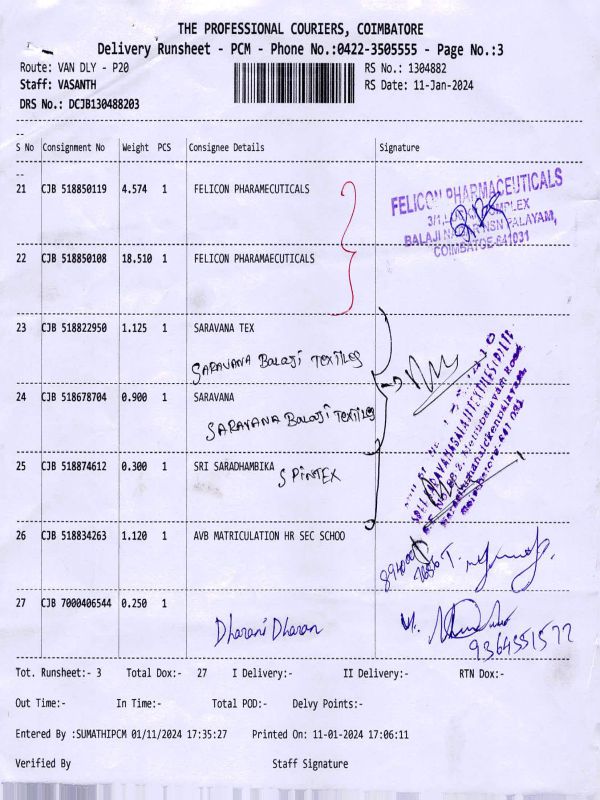 THE PROFESSIONAL COURIERS, COIMBATORE
Delivery Runsheet - PCM - Phone No.:0422-3505555 - Page No.:3
Route: VAN DLY - P20 RS No.: 1304882
Staff: VASANTH RS Date: 11-Jan-2024
DRS No.: DCJB130488203
S No Consignment No Weight PCS Consignee Details Signature
21 CJB 518850119 4.574 1 FELICON PHARAMECUTICALS
FELICON PHARMACEUTICALS
COMPLEX
BALAJI NAGAR NSN PALAYAM,
COIMBATOE-641031
22 CJB 518850108 18.510 1 FELICON PHARAMAECUTICALS
23 CJB 518822950 1.125 1 SARAVANA TEX
SARAVANA BALAJI TEXTILES
24 CJB 518678704 0.900 1 SARAVANA
SARAVANA BALAJI TEXTILES
25 CJB 518874612 0.300 1 SRI SARADHAMBIKA
SPINTEX
26 CJB 518834263 1.120 1 AVB MATRICULATION HR SEC SCHOO
27 CJB 7000406544 0.250 1
Dharani Dharan
9364551572
Tot. Runsheet:- 3 Total Dox:- 27 I Delivery:- II Delivery:- RTN Dox:-
Out Time:- In Time:- Total POD:- Delvy Points:-
Entered By :SUMATHIPCM 01/11/2024 17:35:27 Printed On: 11-01-2024 17:06:11
Verified By Staff Signature